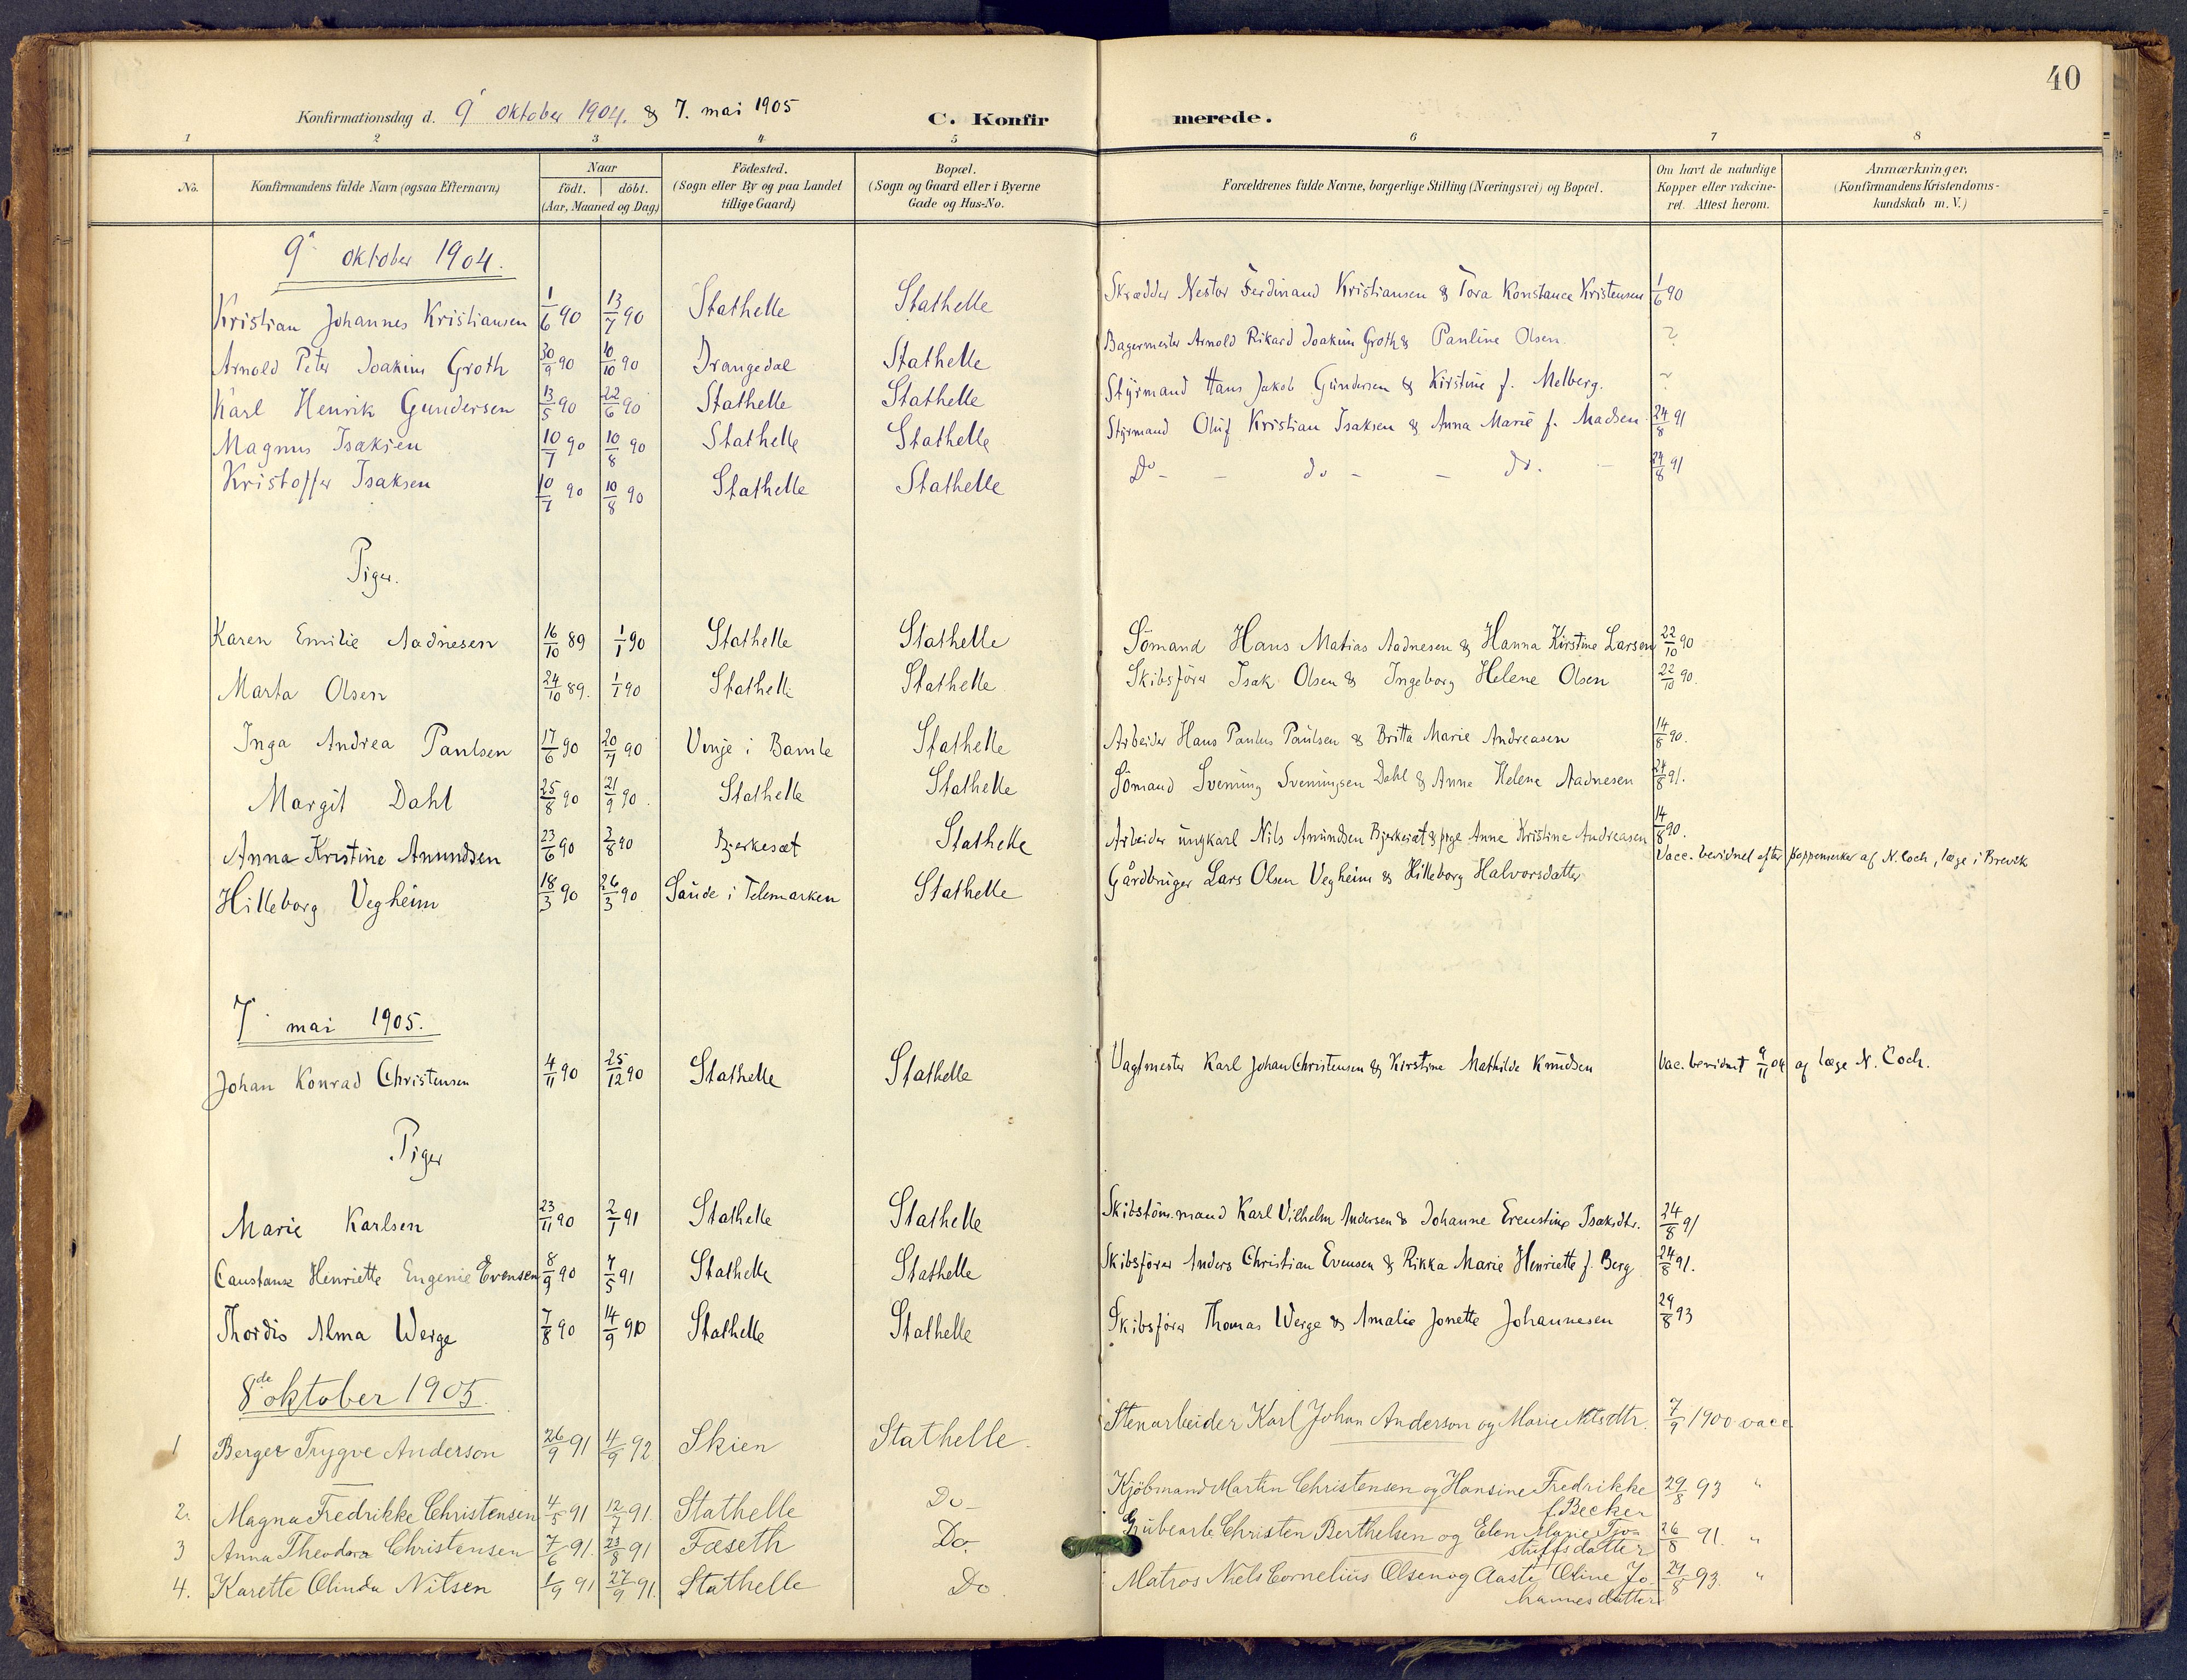 40
Konfirmationsdag d. 9' oktober 1904. & 7. mai 1905
C. Konfirmerede.
1 2 3 4 5 6 7 8
No.
Konfirmandens fulde Navn (ogsaa Efternavn)
Naar
födt. | döbt.
(Aar, Maaned og Dag)
Födested.
(Sogn eller By og paa Landet
tillige Gaard)
Bopæl.
(Sogn og Gaard eller i Byerne
Gade og Hus-No.
Forældrenes fulde Navne, borgerlige Stilling (Næringsvei) og Bopæl.
Om havt de naturlige
Kopper eller vakcine-
ret. Attest herom.
Anmærkninger.
(Konfirmandens Kristendoms-
kundskab m. V.)
9' oktober 1904.
Kristian Johannes Kristiansen 1/6 90 13/7 90 Stathelle Stathelle Skrædder Nestor Ferdinand Kristiansen & Tora Konstance Kristensen 1/6 90
Arnold Peter Joakim Groth 30/9 90 10/10 90 Drangedal Stathelle Bagermester Arnold Rikard Joakim Groth & Pauline Olsen. ?
Karl Henrik Gundersen 13/5 90 22/6 90 Stathelle Stathelle Styrmand Hans Jakob Gundersen & Kirstine f. Melberg. ?
Magnus Isaksen 10/7 90 10/8 90 Stathelle Stathelle Styrmand Oluf Kristian Isaksen & Anna Marie f. Madsen 24/8 91
Kristoffer Isaksen 10/7 90 10/8 90 Stathelle Stathelle Do - - do - - do. - 24/8 91
Piger.
Karen Emilie Aadnesen 16/10 89 1/1 90 Stathelle Stathelle Sömand Hans Matias Aadnesen & Hanna Kirstine Larsen 22/10 90
Marta Olsen 24/10 89. 1/1 90 Stathelle Stathelle Skibsförer Isak Olsen & Ingeborg Helene Olsen 22/10 90.
Inga Andrea Paulsen 17/6 90 20/7 90 Vinje i Bamle Stathelle Arbeider Hans Paulus Paulsen & Britta Marie Andreasen 14/8 90.
Margit Dahl 25/8 90 21/9 90. Stathelle Stathelle Sömand Svening Sveningsen Dahl & Anne Helene Aadnesen 24/8 91.
Anna Kristine Anundsen 23/6 90 3/8 90 Bjerkesæt Stathelle Arbeider ungkarl Nils Anundsen Bjerkesæt & pige Anne Kristine Andreasen 14/8 90.
Hilleborg Vegheim 18/3 90 26/3 90 Saude i Telemarken Stathelle Gårdbruger Lars Olsen Vegheim & Hilleborg Halvorsdatter Vacc. bevidnet efter koppemerker af N. Coch, læge i Brevik
7' mai 1905.
Johan Konrad Christensen 4/11 90 25/12 90 Stathelle Stathelle Vagtmester Karl Johan Christensen & Kirstine Mathilde Knudsen Vac. bevidnet 9/11 04 af læge N. Coch.
Piger
Marie Karlsen 23/11 90 2/1 91 Stathelle Stathelle Skibstöm.mand Karl Vilhelm Andersen & Johanne Ernstine Isaksdtr. 24/8 91
Constanse Henriette Eugenie Evensen 8/9 90 7/5 91 Stathelle Stathelle Skibsförer Anders Christian Evensen & Rikka Marie Henriette f. Berg 24/8 91.
Thordis Alma Werge 7/8 90 14/9 90 Stathelle Stathelle Skibsförer Thomas Werge & Amalie Jonette Johannesen 29/8 93
8de oktober 1905.
1 Berger Trygve Anderson 26/9 91 4/9 92 Skien Stathelle. Stenarbeider Karl Johan Anderson og Marie Nilsdtr. 7/9 1900 vacc.
2. Magna Fredrikke Christensen 4/5 91 12/7 91. Stathelle Do- Kjöbmand Martin Christensen og Hansine Fredrikke 29/8 93 "
f. Becker
3 Anna Theodora Christensen 7/6 91. 23/8 91 Fæseth Do. Grubearb. Christen Berthelsen og Elen Marie 26/8 91. "
4. Karette Olinda Nilsen 1/9 91 27/9 91. Stathelle Do Matros Niels Cornelius Olsen og Aaste Oline Jo- 29/8 93. "
hannesdatter